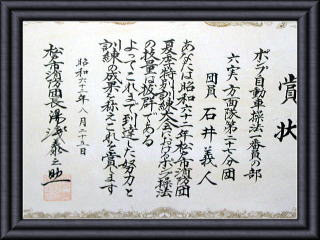 賞状
ポンプ自動車操法一番員の部
六実方面隊第二十七分団
団員 石井義人
あなたは昭和六十二年松戸市消防団
夏季特別訓練大会においてポンプ操法
の技量は抜群である
よってこれまで到達した努力と
訓練の成果を称えこれを賞します
昭和六十二年八月二十三日
松戸市消防団長 湯浅泰之助